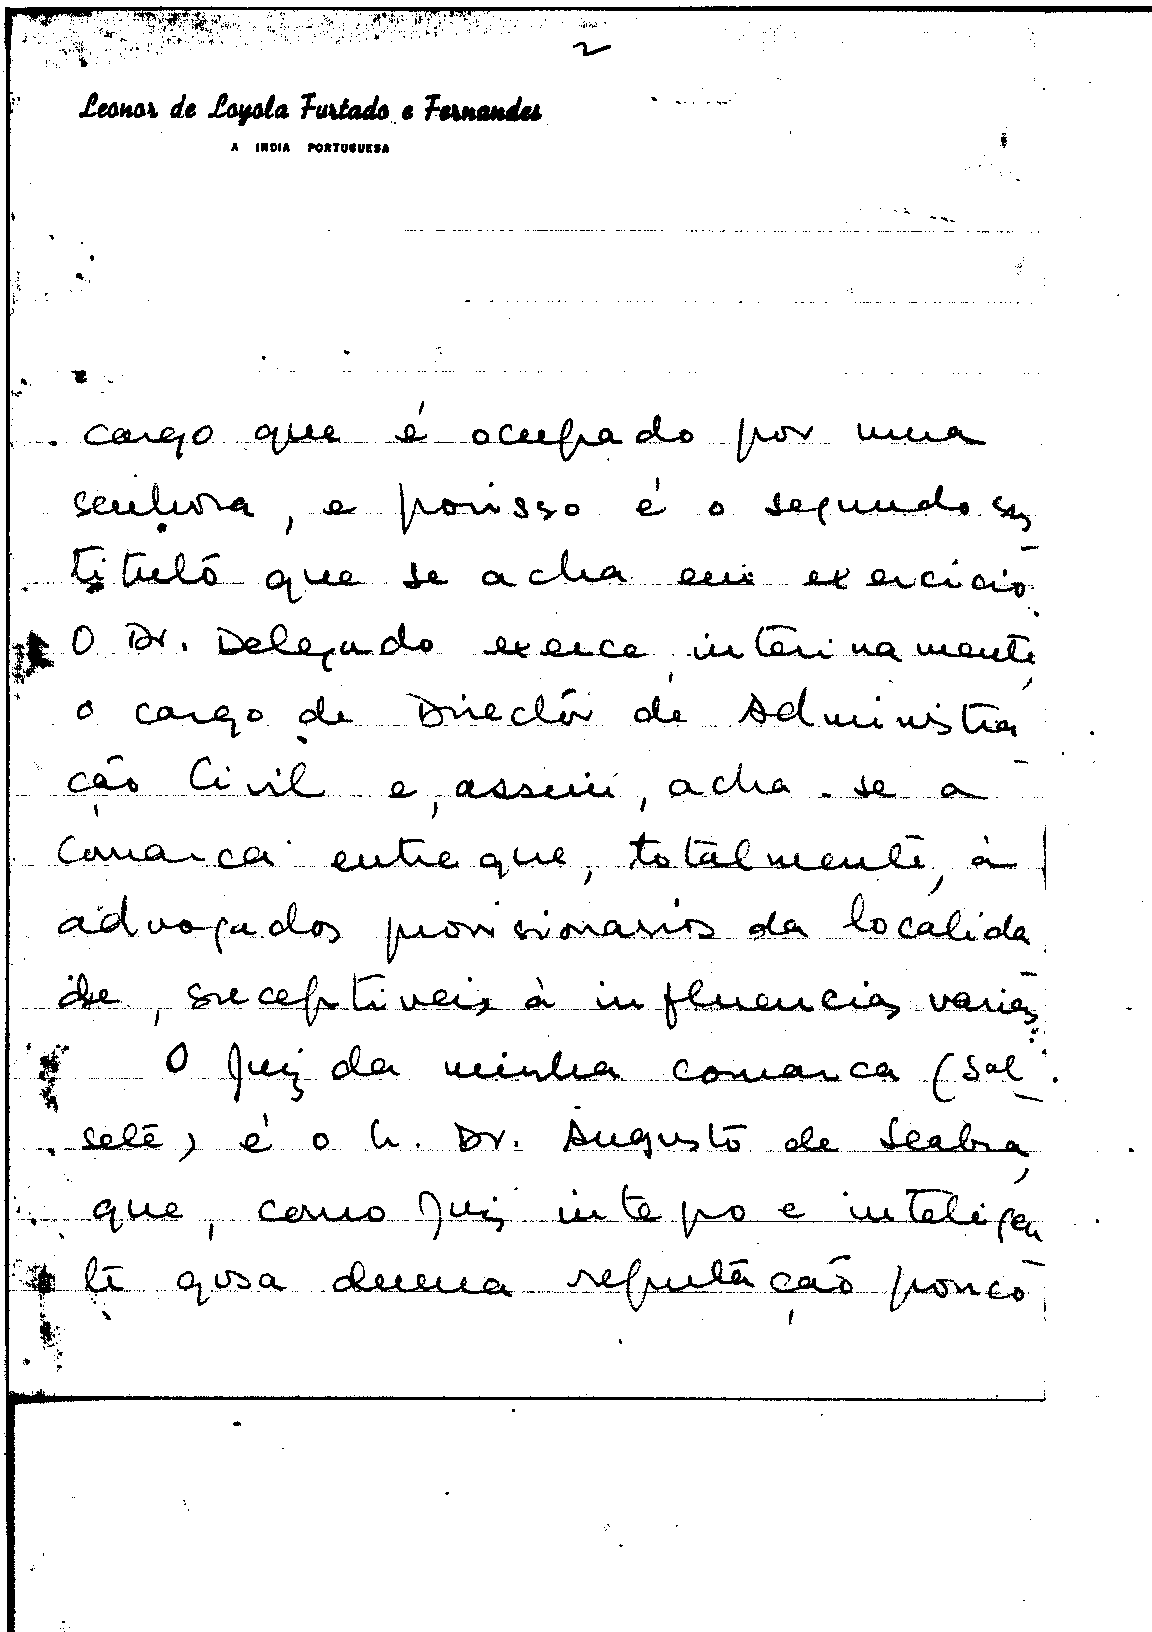 2
Leonor de Loyola Furtado e Fernandes
A INDIA PORTUGUESA
cargo que é ocupado por uma
senhora, e porisso é o segundo su
tituto que se acha em exercicio.
O Dr. Delegado exerce, interinamente,
o cargo de Director de Administra-
ção Civil e, assim, acha-se a
comarca entregue, totalmente, à
advogados provisionarios da localida-
de, suceptiveis à influencias varias.
O Juiz da minha comarca (Sal-
sete) é o Dr. Augusto de Seabra,
que, como Juiz integro e inteligen
te gosa duma reputação pouco